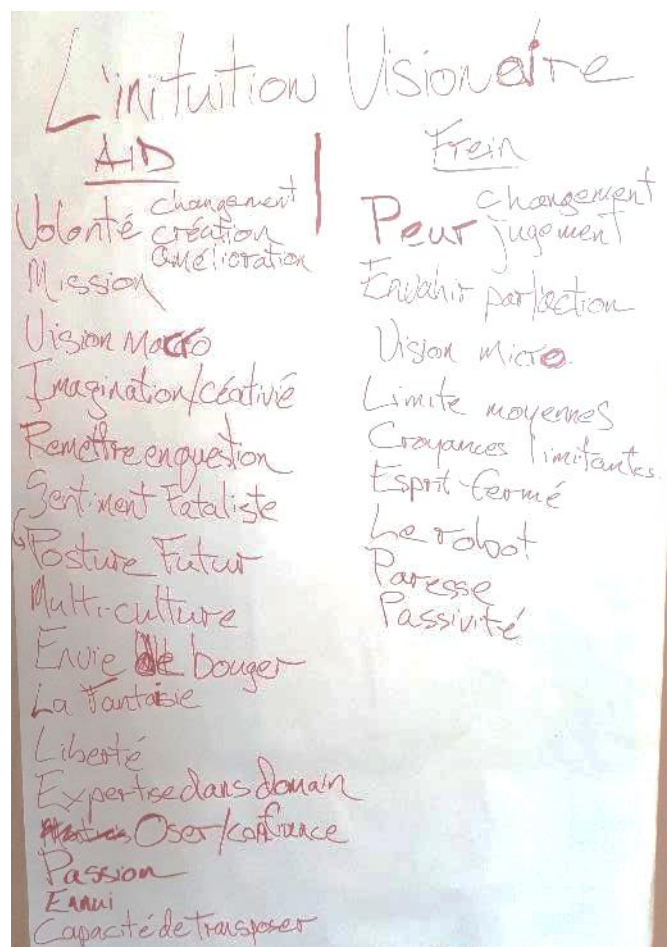 L'inituition Visionaire
AID
Volonté changement
création
amélioration
Mission
Vision Macro
Imagination/céativié
Remettre en question
Sentiment Fataliste
Posture Futur
Multi-culture
Envie de bouger
La Fantaisie
Liberté
Expertise dans domain
Oser/confiance
Passion
Ennui
Capacité de Transposer
Frein
Peur changement
jugement
Envahir par l'action
Vision micro
Limite moyennes
Croyances limitantes
Esprit fermé
Le robot
Paresse
Passivité